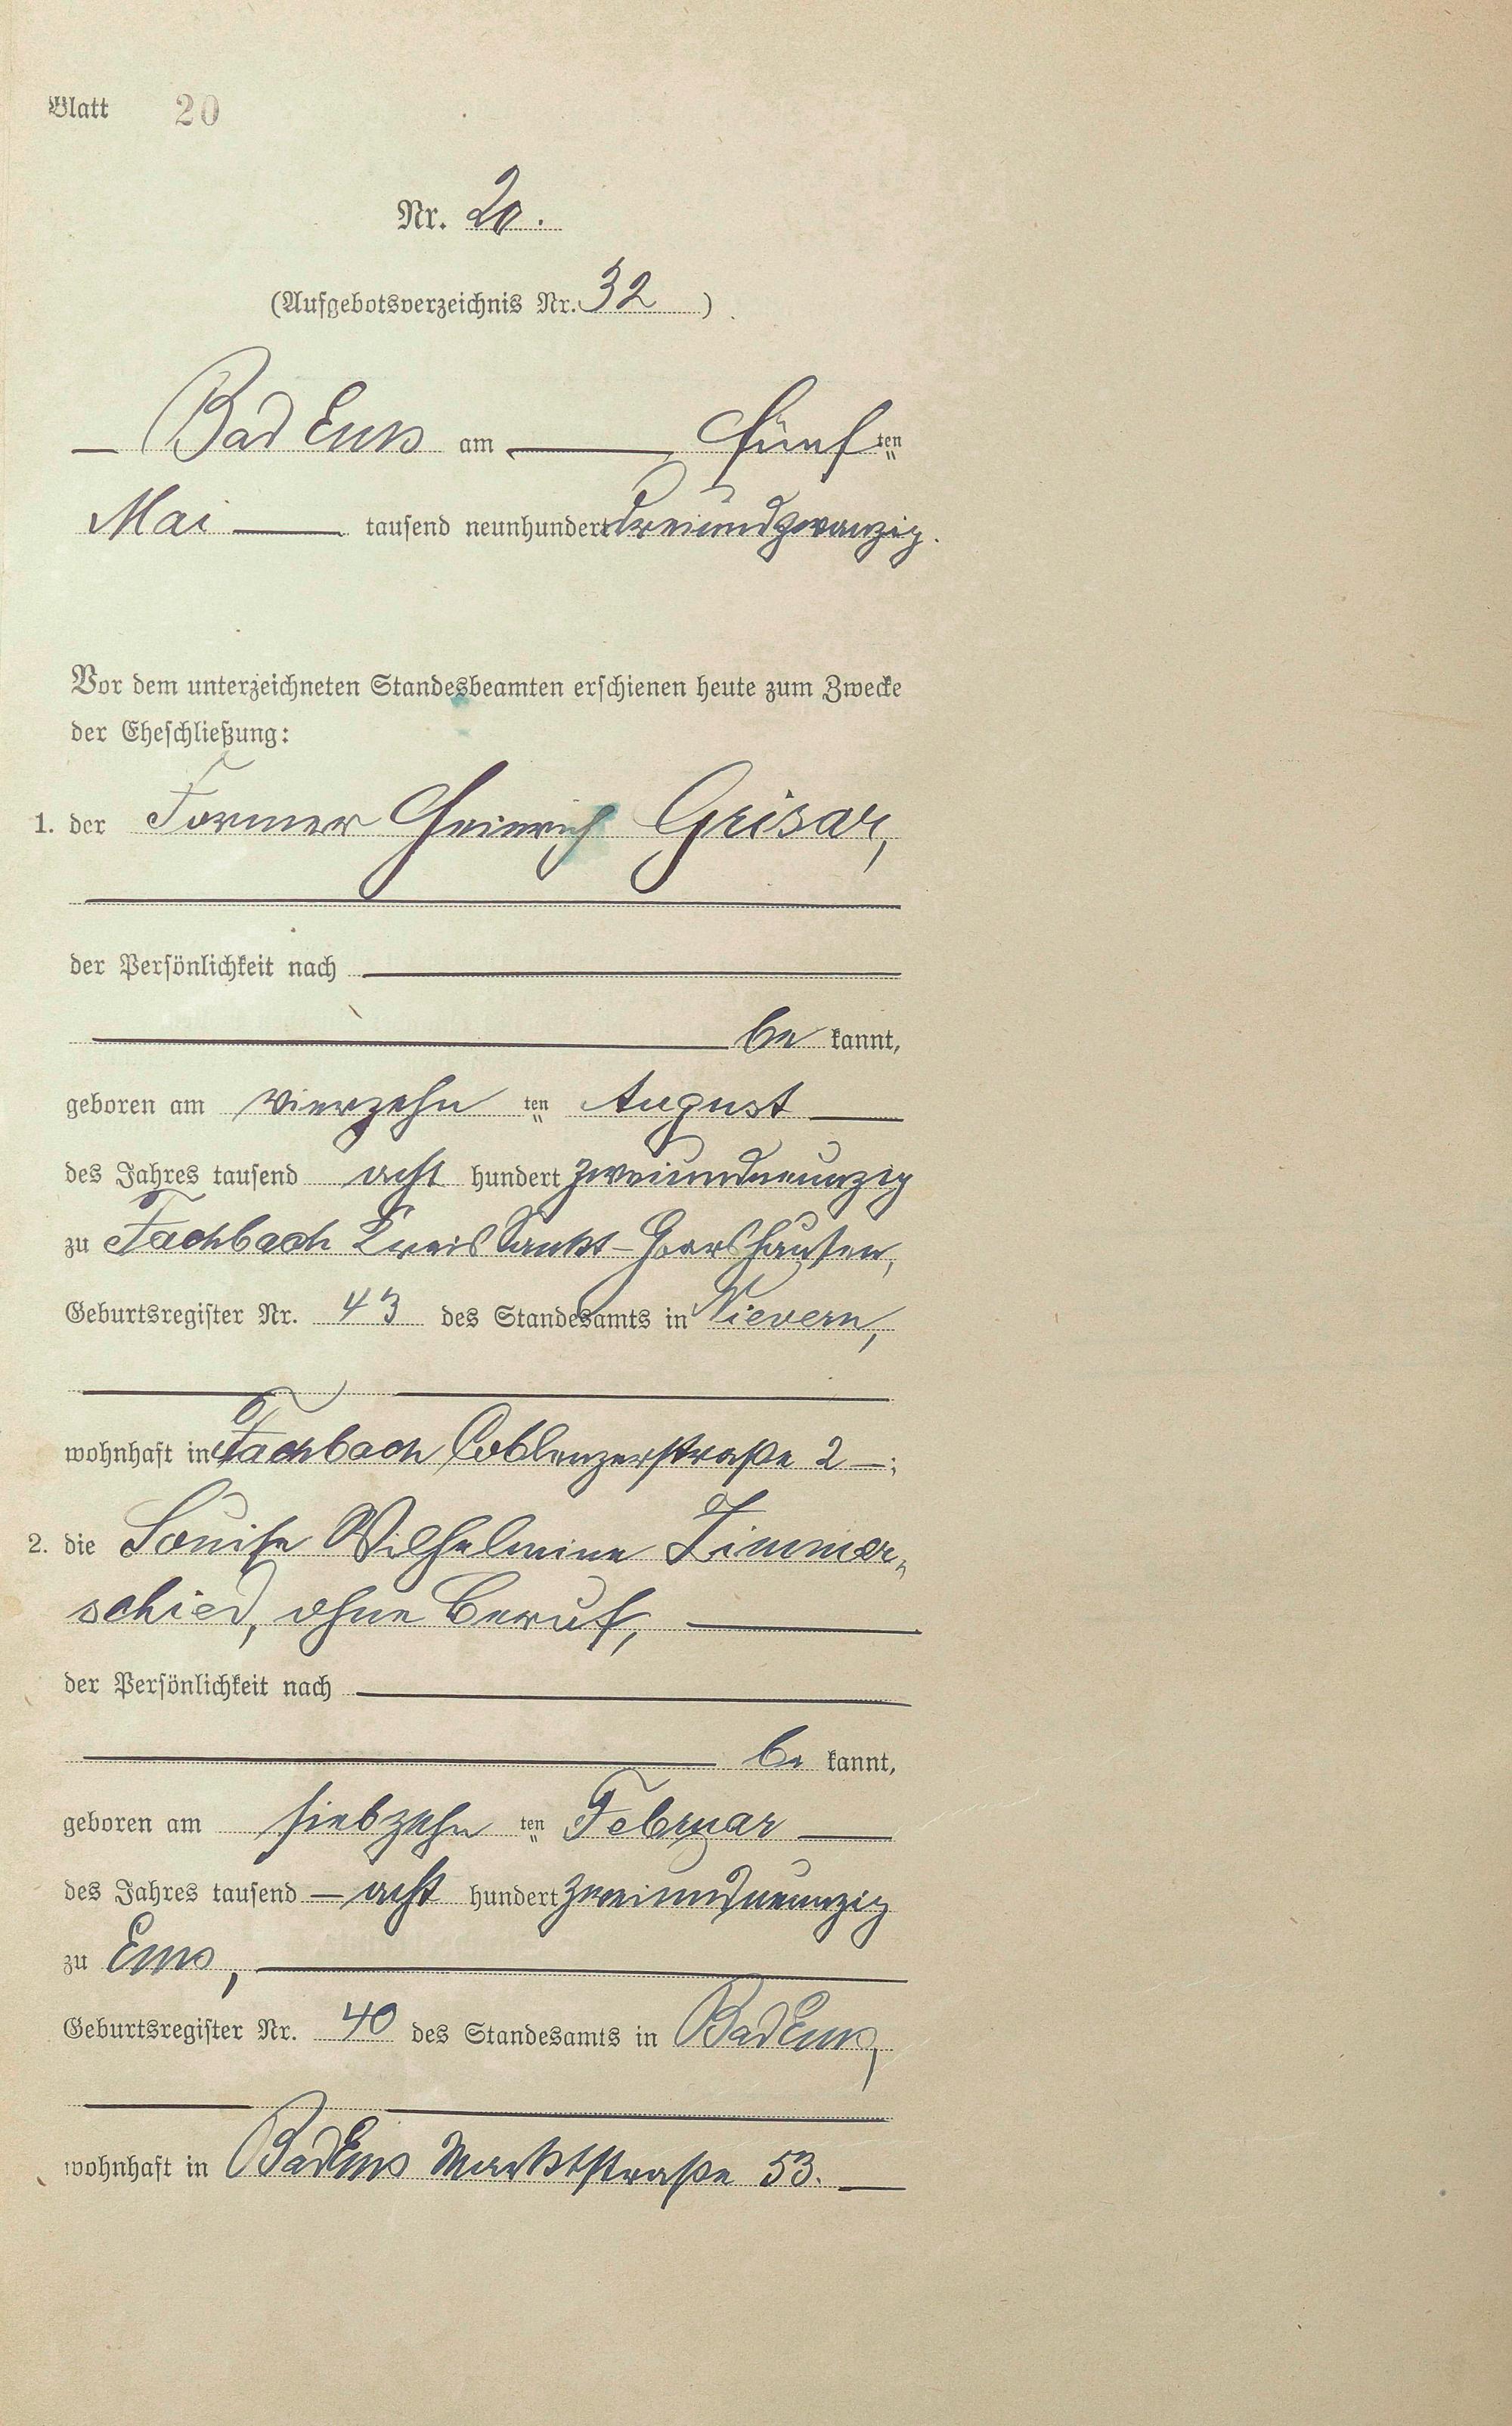 Blatt 20
Nr. 20.
(Aufgebotsverzeichnis Nr. 32)
Bad Ems am fünften
Mai tausend neunhundert dreiundzwanzig.
Vor dem unterzeichneten Standesbeamten erschienen heute zum Zwecke
der Eheschließung:
1. der Former Heinrich Grisar,
der Persönlichkeit nach
be kannt,
geboren am vierzehn ten August
des Jahres tausend acht hundert zweiundneunzig
zu Fachbach Kreis Sankt-Goarshausen,
Geburtsregister Nr. 43 des Standesamts in Nievern,
wohnhaft in Fachbach Coblenzerstraße 2 ;
2. die Louise Wilhelmine Zimmer-
schied, ohne Beruf,
der Persönlichkeit nach
be kannt,
geboren am siebzehn ten Februar
des Jahres tausend acht hundert zweiundneunzig
zu Ems,
Geburtsregister Nr. 40 des Standesamts in Bad Ems,
wohnhaft in Bad Ems Marktstraße 53.